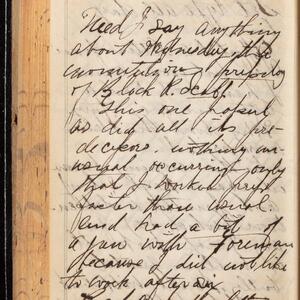 Need I say anything
about Wednesday, the
monotulous
of Block R.
This one
as did all its pre-
decesors. nothing un-
usual occurring only
that I worked
faster than usual
and had a bit of
a jaw with Foreman
because I did not like
to work after